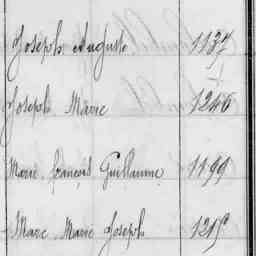 Joseph Auguste 1137
Joseph Marie 1246
Marie François Guillaume 1199
Marc Marie Joseph